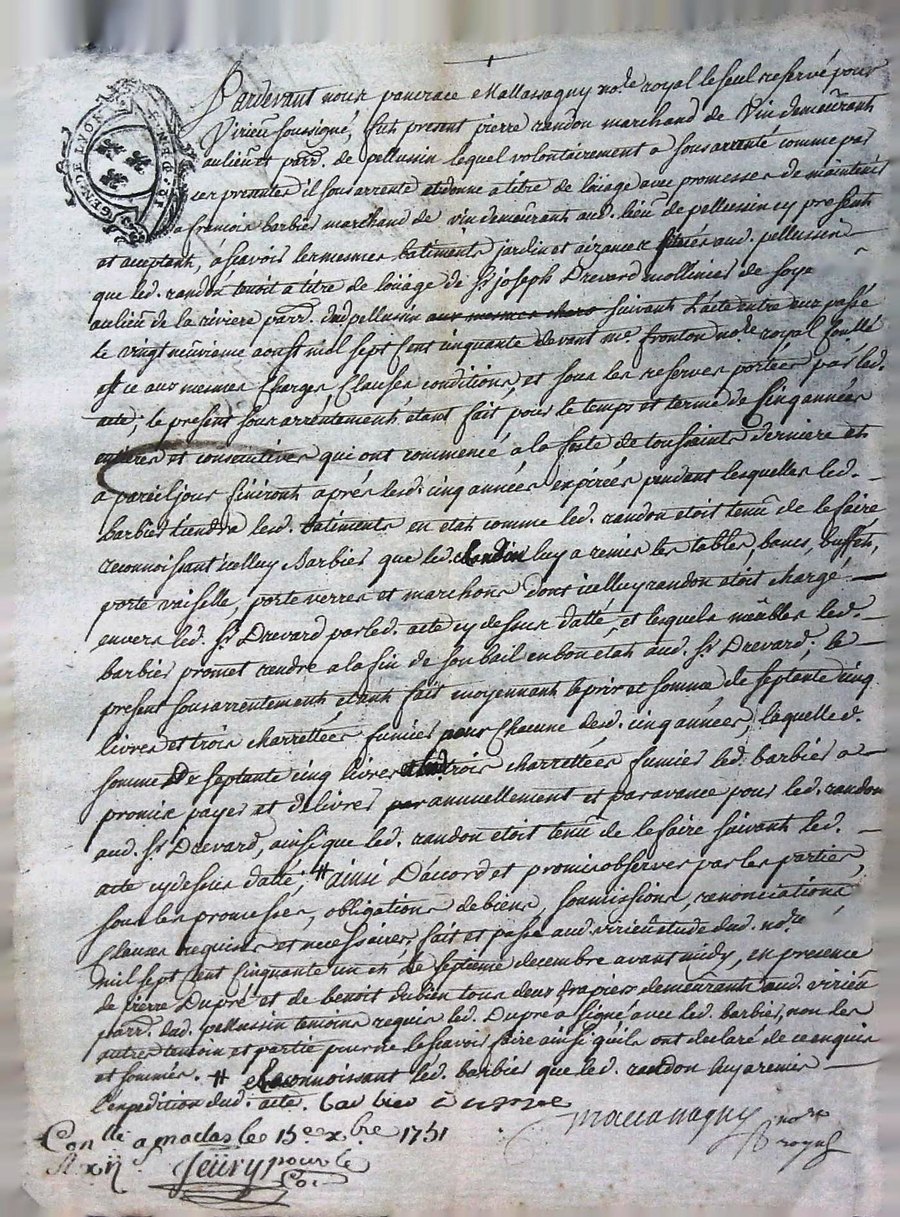 GEN. DE LYON
Pardevant nous pancrace Mallassagny no.re royal le seul reservé pour
Virieu soussigné, fut present pierre randon marchand de Vin demeurant
au lieu et parr. de pellussin lequel volontairement a sousarrenté comme par
ces presentes il sousarrente et donne a titre de loüage avec promesses de maintenir
a francois barbier marchand de vin demeurant aud. lieu de pellussin cy present
et aceptant, ascavoir les mesmes batiments jardin et aizances situés aud. pellussin
que led. randon tenoit a titre de loüage de Sr. joseph Drevard mollinier de soye
au lieu de la riviere parr. dud. pellussin suivant l'acte entre eux passé
le vingt neuvieme aoust mil sept cent cinquante devant me. fronton no.re royal
et ce aux mesmes charges, clauses conditions et sous les reserves portées par led.
acte; le present sousarrentement etant fait pour le temps et terme de cinq années
entieres et consecutives qui ont commencé a la feste de toussaints derniere et
a pareil jour finiront aprés lesd. cinq années expirées pendant lesquelles led.
barbier tiendra lesd. batiments en etat comme led. randon etoit tenu de le faire
reconnoissant icelluy barbier que led. randon luy a remis les tables, bancs, buffets,
porte vaiselle, porte verres et marchons dont icelluy randon etoit chargé
envers led. Sr. Drevard par led. acte cy dessus datté, et lesquels meubles led.
barbier promet rendre a la fin de son bail en bon etat aud. Sr. Drevard; le
present sousarrentement etant fait moyennant le prix et somme de septante cinq
livres et trois charrettées fumier pour chacune desd. cinq années, laquelle d.
somme De septante cinq livres trois charrettées fumier led. barbier a
promis payer et delivrer annuellement et par avance pour led. randon
aud. Sr. Drevard, ainsi que led. randon etoit tenu de le faire suivant led.
acte cy dessus datté, # ainsi D'accord et promis observer par les parties,
sous les promesses, obligations de biens, soumissions, renonciations
clauses requises et necessaires, fait et passé aud. virieu etude dud. no.re
mil sept cent cinquante un et le septieme decembre avant midy, en presence
de pierre Dupré et de benoit dubien tous deux drapiers demeurants aud. virieu
parr. dud. pellussin temoins requis led. Dupre a signé avec led. barbier, non les
autres temoin et partie pour ne le scavoir faire ainsi qu'ils ont declaré de ce enquis
et sommés. # reconnoissant led. barbier que led. randon luy a remis
l'expedition dud. acte. barbier
Mallassagny no.re royal
Con.llé a maclas le 15e xbre 1751
R xij s Seüry pour le
Co.is